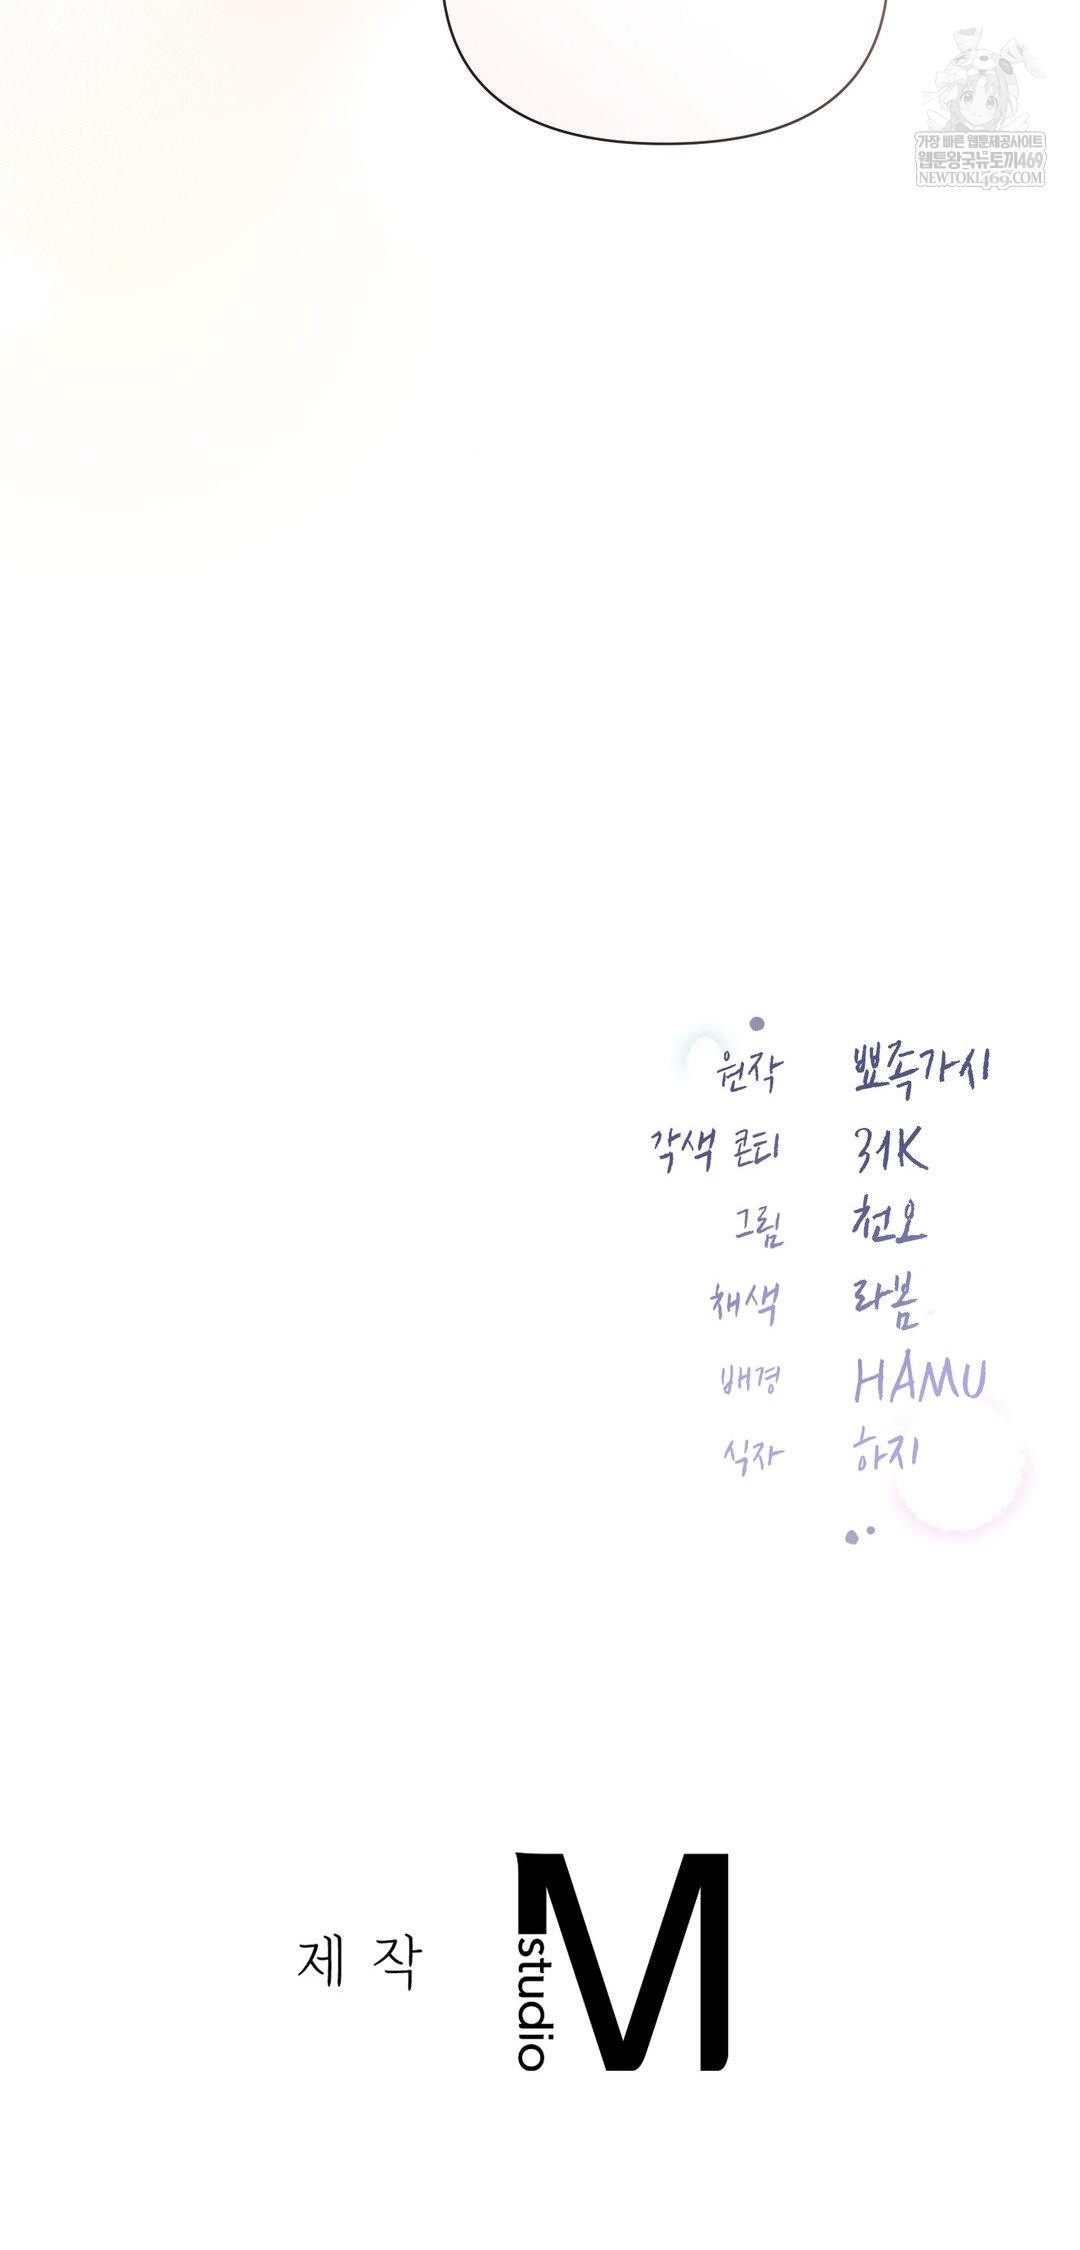 가장 빠른 웹툰제공사이트
웹툰왕국뉴토끼469
NEWTOKI469.COM
원작 뾰족가시
각색 콘티 31K
그림 천오
채색 라봄
배경 HAMU
식자 하지
제작 M studio